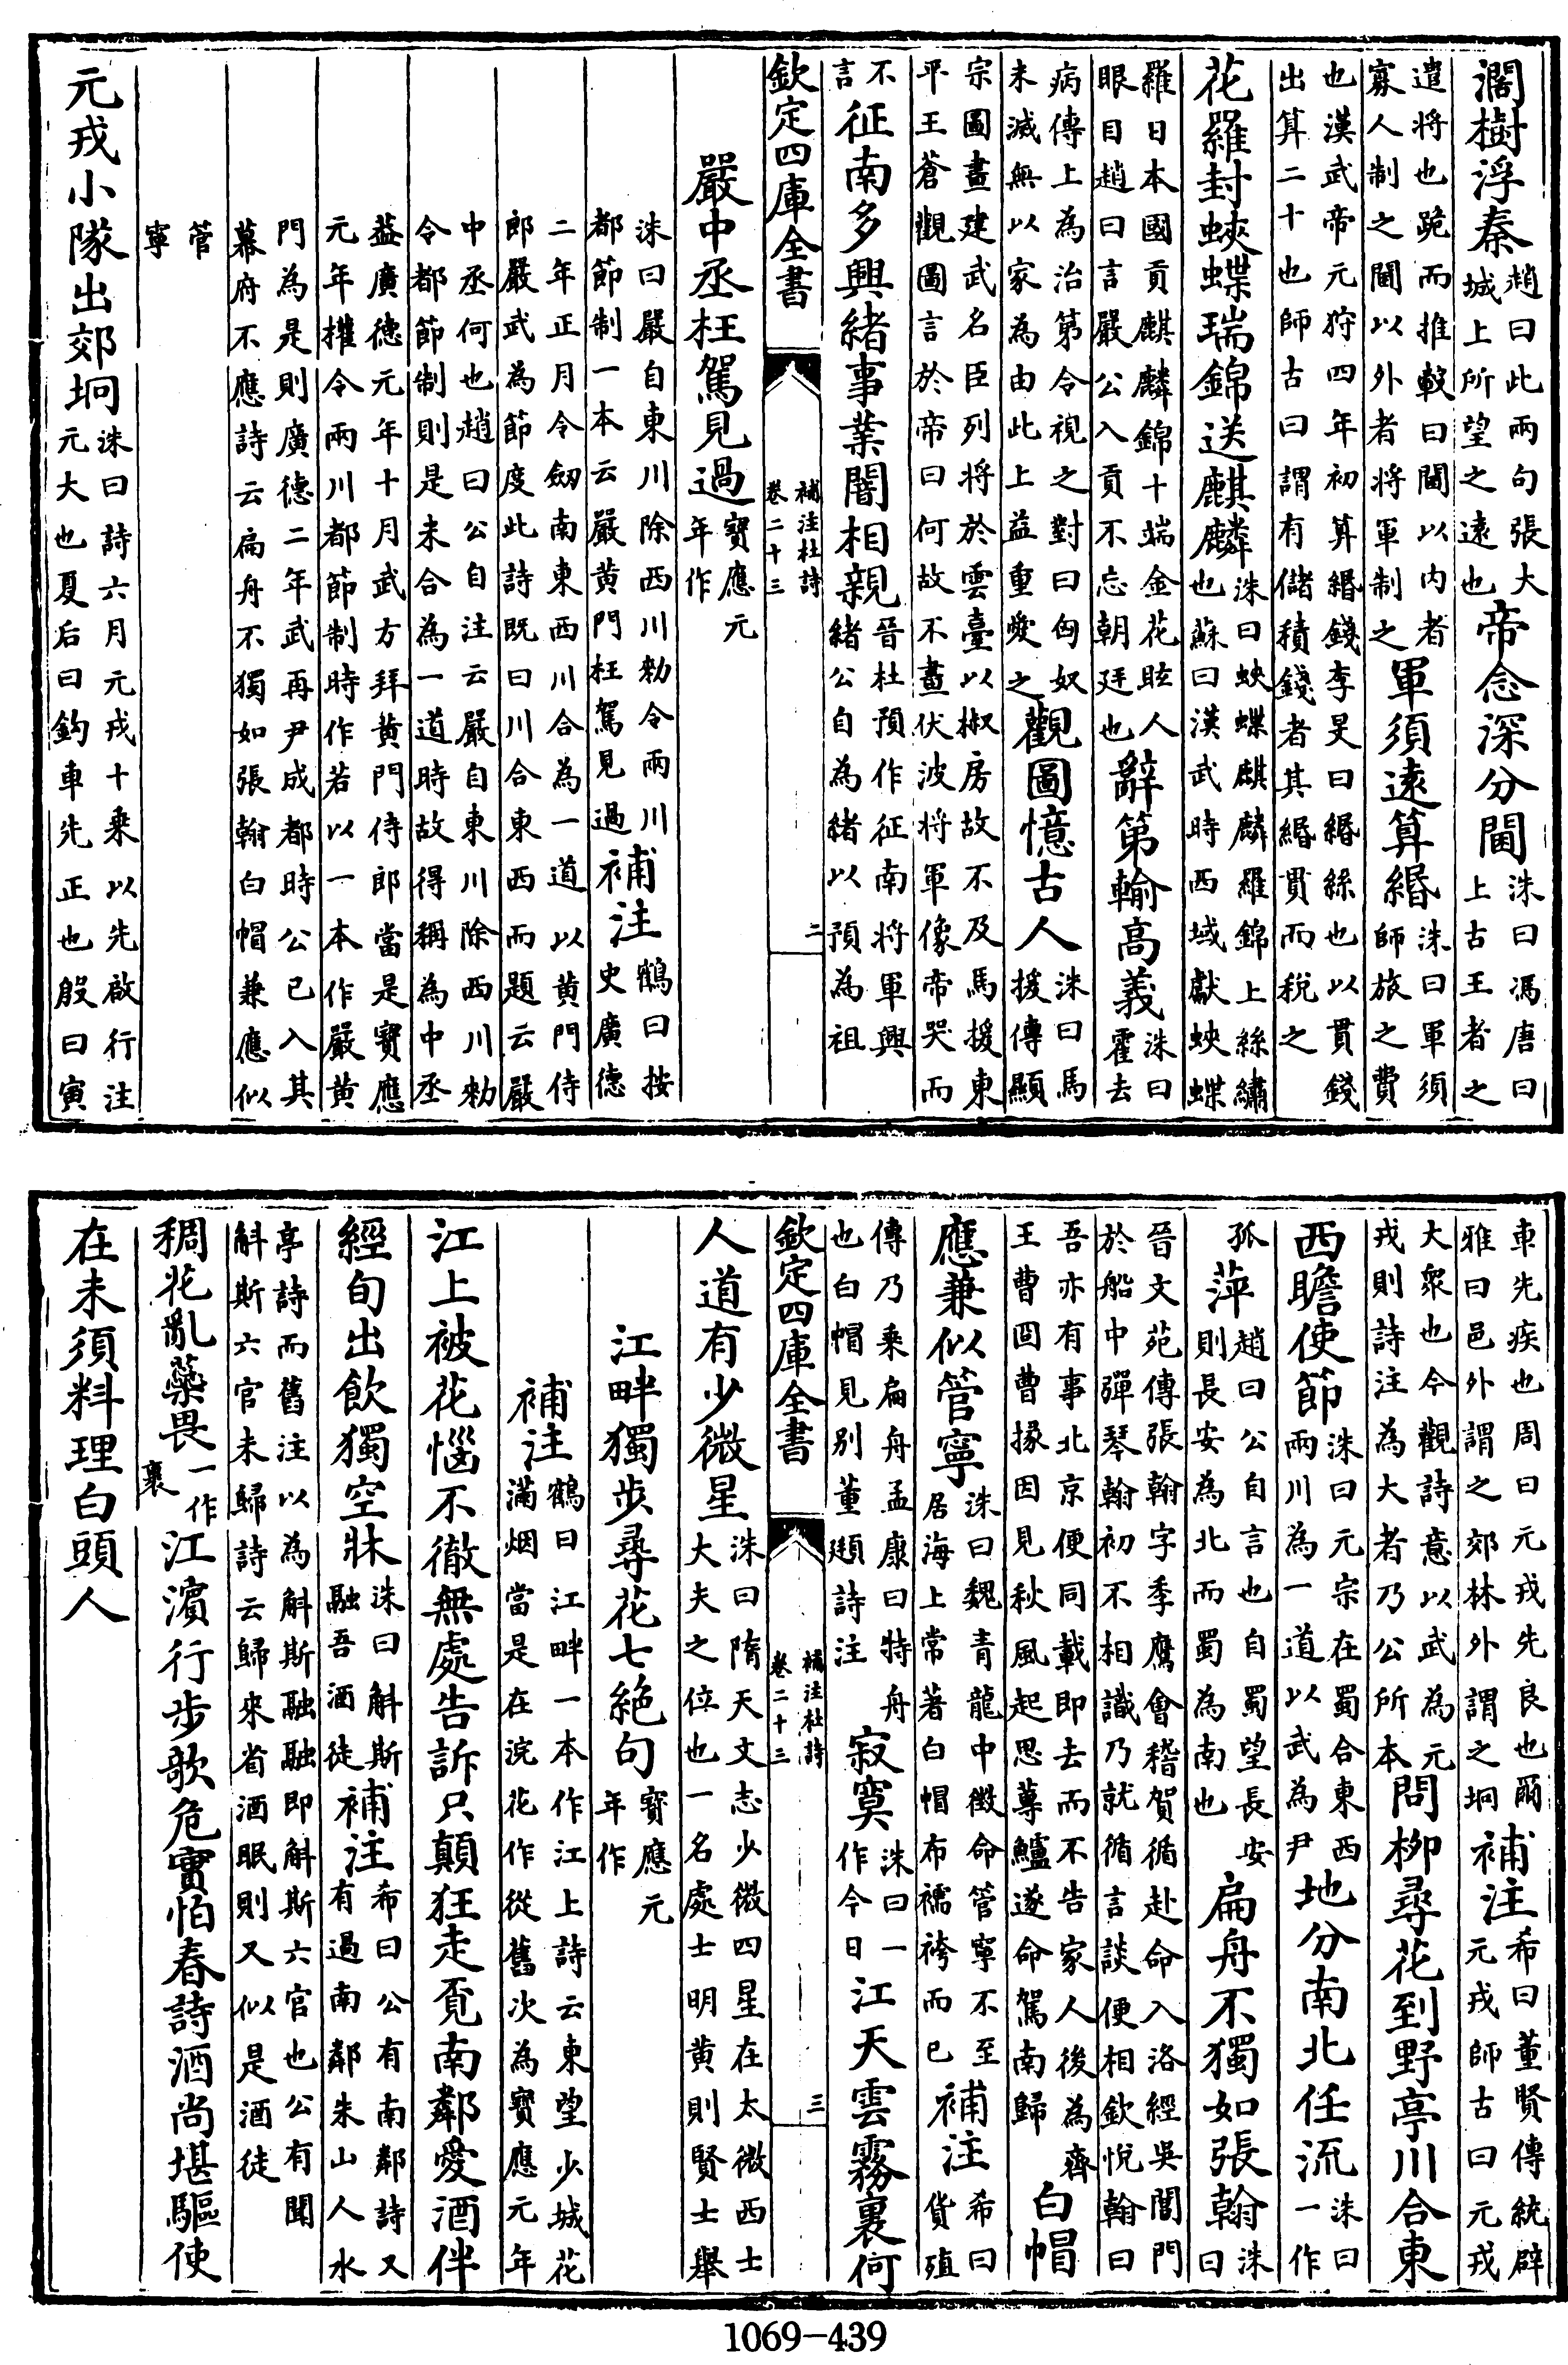 濶樹浮秦趙曰此兩句張大城上所望之遠也帝念深分閫洙曰馮唐曰上古王者之
遣将也跪而推轂曰閫以内者寡人制之閫以外者将軍制之軍須遠算緡洙曰軍須師旅之費
也漢武帝元狩四年初算緡錢李旻曰緡絲也以貫錢出算二十也師古曰謂有儲積錢者其緡貫而稅之
花羅封蛺蝶瑞錦送麒麟洙曰蛺蝶麒麟羅錦上絲繡也蘇曰漢武時西域獻蛺蝶
羅日本國貢麒麟錦十端金花眩人眼目趙曰言嚴公入貢不忘朝廷也辭第輸高義洙曰霍去
病傳上為治第令視之對曰匈奴未滅無以家為由此上益重愛之觀圖憶古人洙曰馬援傳顯
宗圖畫建武名臣列将於雲臺以椒房故不及馬援東平王蒼觀圖言於帝曰何故不畫伏波将軍像帝哭而
不言征南多興緒事業闇相親晉杜預作征南将軍興緒公自為緒以預為祖
欽定四庫全書 補注杜詩卷二十三 二
嚴中丞枉駕見過寶應元年作
洙曰嚴自東川除西川勅令兩川都節制一本云嚴黄門枉駕見過補注鶴曰按史廣德
二年正月令劒南東西川合為一道以黄門侍郎嚴武為節度此詩既曰川合東西而題云嚴
中丞何也趙曰公自注云嚴自東川除西川勅令都節制則是未合為一道時故得稱為中丞
葢廣德元年十月武方拜黄門侍郎當是寶應元年權令兩川都節制時作若以一本作嚴黄
門為是則廣德二年武再尹成都時公已入其幕府不應詩云扁舟不獨如張翰白帽兼應似
管寧
元戎小隊出郊坰洙曰詩六月元戎十乘以先啟行注元大也夏后曰鈎車先正也殷曰寅
車先疾也周曰元戎先良也爾雅曰邑外謂之郊林外謂之坰補注希曰董賢傳統辟元戎師古曰元戎
大衆也今觀詩意以武為元戎則詩注為大者乃公所本問柳尋花到野亭川合東
西瞻使節洙曰元宗在蜀合東西兩川為一道以武為尹地分南北任流洙曰一作
孤萍趙曰公自言也自蜀望長安則長安為北而蜀為南也扁舟不獨如張翰洙曰
晉文苑傳張翰字季鷹會稽賀循赴命入洛經吳閶門於船中彈琴翰初不相識乃就循言談便相欽悦翰曰
吾亦有事北京便同載即去而不告家人後為齊王曹囧曹掾因見秋風起思蓴鱸遂命駕南歸白帽
應兼似管寧洙曰魏青龍中徵命管寧不至居海上常著白帽布襦袴而已補注希曰貨殖
傳乃乘扁舟孟康曰特舟也白帽見别董頲詩注寂寞洙曰一作今日江天雲霧裏何
欽定四庫全書 補注杜詩卷二十三 三
人道有少微星洙曰隋天文志少微四星在太微西士大夫之位也一名處士明黄則賢士舉
江畔獨步尋花七絶句寶應元年作
補注鶴曰江畔一本作江上詩云東望少城花滿烟當是在浣花作從舊次為寶應元年
江上被花惱不徹無處告訴只顛狂走覓南鄰愛酒伴
經旬出飲獨空牀洙曰斛斯融吾酒徒補注希曰公有南鄰詩又有過南鄰朱山人水
亭詩而舊注以為斛斯融融即斛斯六官也公有聞斛斯六官未歸詩云歸來省酒眠則又似是酒徒
稠花亂蘂畏一作裹江濵行步欹危實怕春詩酒尚堪驅使
在未須料理白頭人
1069-439